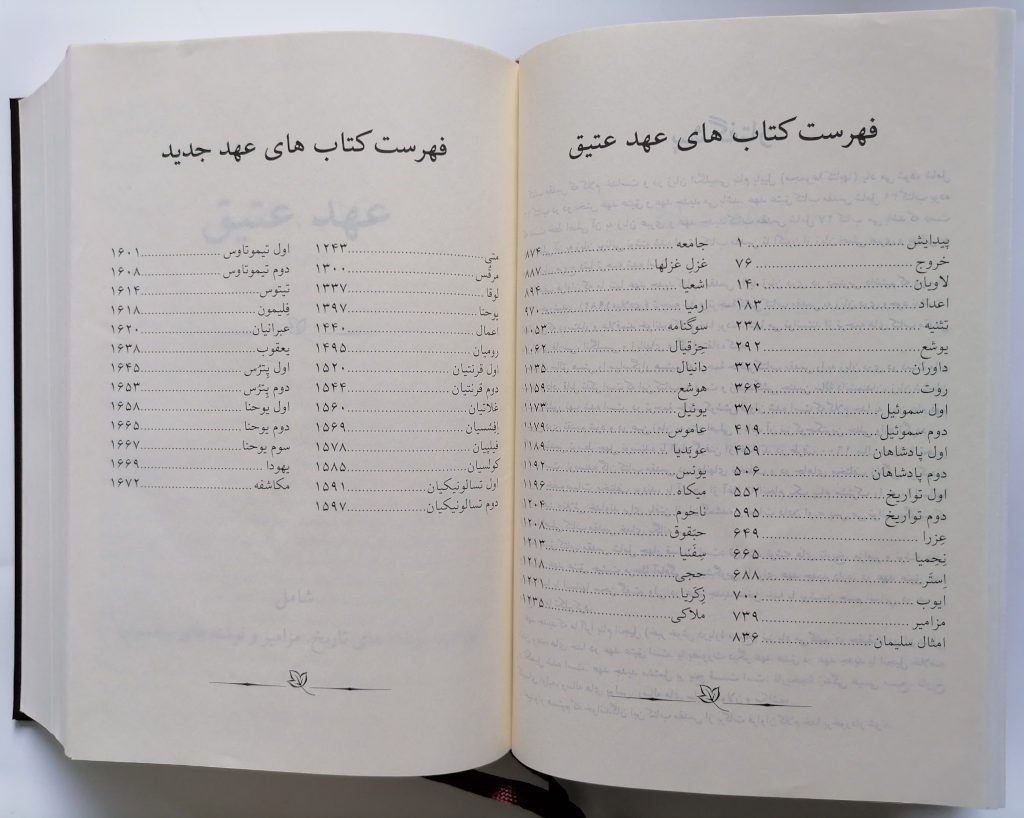 فهرست کتاب های عهد عتیق
پیدایش ۱
خروج ۷۶
لاویان ۱۴۰
اعداد ۱۸۳
تثنیه ۲۳۸
یوشع ۲۹۲
داوران ۳۲۷
روت ۳۶۴
اول سموئیل ۳۷۰
دوم سموئیل ۴۱۹
اول پادشاهان ۴۵۹
دوم پادشاهان ۵۰۶
اول تواریخ ۵۵۲
دوم تواریخ ۵۹۵
عِزرا ۶۴۹
نِحِمیا ۶۶۵
اِستَر ۶۸۸
ایوب ۷۰۰
مزامیر ۷۳۹
امثال سلیمان ۸۳۶
جامعه ۸۷۴
غزلِ غزلها ۸۸۷
اشعیا ۸۹۴
ارمیا ۹۷۰
سوگنامه ۱۰۵۳
حِزقیال ۱۰۶۲
دانیال ۱۱۳۵
هوشع ۱۱۵۹
یوئیل ۱۱۷۳
عاموس ۱۱۷۹
عوبَدیا ۱۱۸۹
یونس ۱۱۹۲
میکاه ۱۱۹۶
ناحوم ۱۲۰۴
حبَقوق ۱۲۰۸
صِفَنیا ۱۲۱۳
حجی ۱۲۱۸
زِکَریا ۱۲۲۱
ملاکی ۱۲۳۵
فهرست کتاب های عهد جدید
متی ۱۲۴۳
مرقُس ۱۳۰۰
لوقا ۱۳۳۷
یوحنا ۱۳۹۷
اعمال ۱۴۴۰
رومیان ۱۴۹۵
اول قرنتیان ۱۵۲۰
دوم قرنتیان ۱۵۴۴
غلاتیان ۱۵۶۰
اِفِسُسیان ۱۵۶۹
فیلیپیان ۱۵۷۸
کولسیان ۱۵۸۵
اول تسالونیکیان ۱۵۹۱
دوم تسالونیکیان ۱۵۹۷
اول تیموتاوس ۱۶۰۱
دوم تیموتاوس ۱۶۰۸
تیتوس ۱۶۱۴
فِلیمون ۱۶۱۸
عبرانیان ۱۶۲۰
یعقوب ۱۶۳۸
اول پِترُس ۱۶۴۵
دوم پِترُس ۱۶۵۳
اول یوحنا ۱۶۵۸
دوم یوحنا ۱۶۶۵
سوم یوحنا ۱۶۶۷
یهودا ۱۶۶۹
مکاشفه ۱۶۷۲
عهد عتیق
شامل